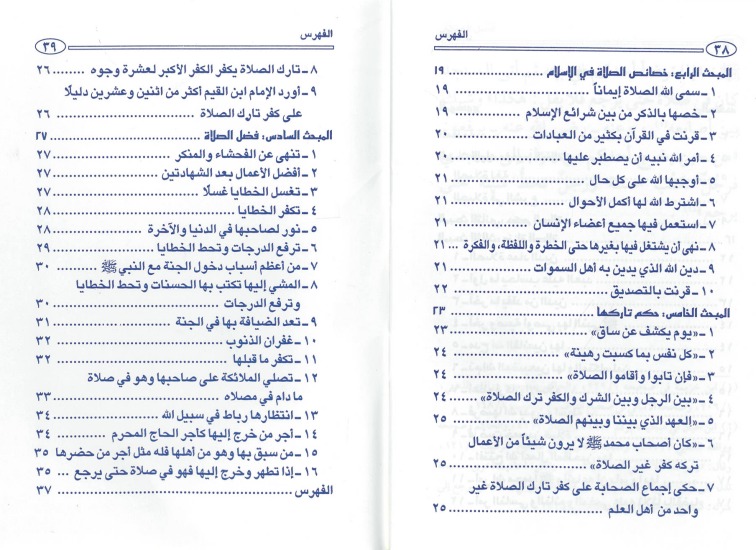 الفهرس
٣٨
المبحث الرابع: خصائص الصلاة في الإسلام ........ ١٩
١ ـ سمى الله الصلاة إيماناً ........ ١٩
٢ ـ خصها بالذكر من بين شرائع الإسلام ........ ١٩
٣ ـ قرنت في القرآن بكثير من العبادات ........ ٢٠
٤ ـ أمر الله نبيه أن يصطبر عليها ........ ٢٠
٥ ـ أوجبها الله على كل حال ........ ٢١
٦ ـ اشترط الله لها أكمل الأحوال ........ ٢١
٧ ـ استعمل فيها جميع أعضاء الإنسان ........ ٢١
٨ ـ نهى أن يشتغل فيها بغيرها حتى الخطرة واللفظة، والفكرة .. ٢١
٩ ـ دين الله الذي يدين به أهل السموات ........ ٢١
١٠ ـ قرنت بالتصديق ........ ٢٢
المبحث الخامس: حكم تاركها ........ ٢٣
١ ـ «يوم يكشف عن ساق» ........ ٢٣
٢ ـ «كل نفس بما كسبت رهينة» ........ ٢٤
٣ ـ «فإن تابوا وأقاموا الصلاة» ........ ٢٤
٤ ـ «بين الرجل وبين الشرك والكفر ترك الصلاة» ........ ٢٤
٥ ـ «العهد الذي بيننا وبينهم الصلاة» ........ ٢٥
٦ ـ «كان أصحاب محمد ﷺ لا يرون شيئاً من الأعمال
تركه كفر غير الصلاة» ........ ٢٥
٧ ـ حكى إجماع الصحابة على كفر تارك الصلاة غير
واحد من أهل العلم ........ ٢٥
الفهرس
٣٩
٨ ـ تارك الصلاة يكفر الكفر الأكبر لعشرة وجوه ........ ٢٦
٩ ـ أورد الإمام ابن القيم أكثر من اثنين وعشرين دليلًا
على كفر تارك الصلاة ........ ٢٦
المبحث السادس: فضل الصلاة ........ ٢٧
١ ـ تنهى عن الفحشاء والمنكر ........ ٢٧
٢ ـ أفضل الأعمال بعد الشهادتين ........ ٢٧
٣ ـ تغسل الخطايا غسلًا ........ ٢٧
٤ ـ تكفر الخطايا ........ ٢٨
٥ ـ نور لصاحبها في الدنيا والآخرة ........ ٢٨
٦ ـ ترفع الدرجات وتحط الخطايا ........ ٢٩
٧ ـ من أعظم أسباب دخول الجنة مع النبي ﷺ ........ ٣٠
٨ ـ المشي إليها تكتب بها الحسنات وتحط الخطايا
وترفع الدرجات ........ ٣٠
٩ ـ تعد الضيافة بها في الجنة ........ ٣١
١٠ ـ غفران الذنوب ........ ٣٢
١١ ـ تكفر ما قبلها ........ ٣٢
١٢ ـ تصلي الملائكة على صاحبها وهو في صلاة
ما دام في مصلاه ........ ٣٣
١٣ ـ انتظارها رباط في سبيل الله ........ ٣٤
١٤ ـ أجر من خرج إليها كأجر الحاج المحرم ........ ٣٤
١٥ ـ من سبق بها وهو من أهلها فله مثل أجر من حضرها ٣٥
١٦ ـ إذا تطهر وخرج إليها فهو في صلاة حتى يرجع ... ٣٥
الفهرس ........ ٣٧